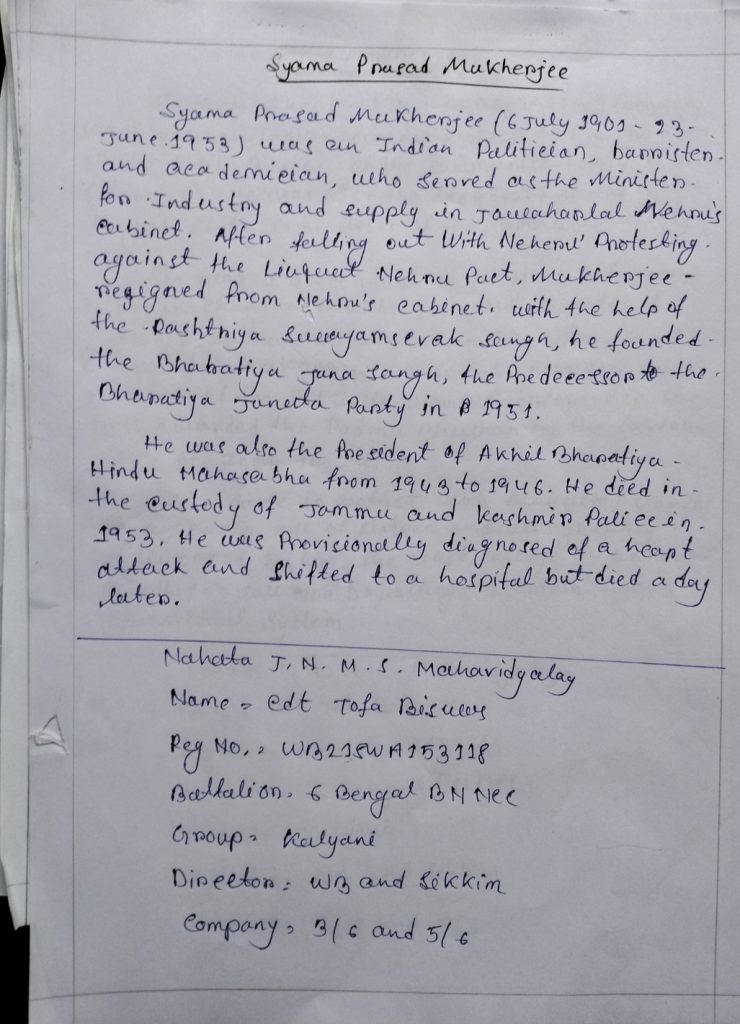 Syama Prasad Mukherjee
Syama Prasad Mukherjee (6 July 1901 - 23-
June 1953) was an Indian Palitician, barrister-
and academician, who served as the Minister-
for Industry and supply in Jawaharlal Nehru's
Cabinet. After falling out With Neheru' Protesting-
against the Liaquat Nehru Pact, Mukherjee-
resigned from Nehru's cabinet. with the help of
the Rashtriya Swayamsevak sangh, he founded-
the Bharatiya Jana Sangh, the Predecessor to the-
Bharatiya Janata Party in 1951.
He was also the President of Akhil Bharatiya-
Hindu Mahasabha from 1943 to 1946. He died in-
the custody of Jammu and Kashmir Palice in.
1953. He was Provisionally diagnosed of a heart
attack and Shifted to a hospital but died a day
later.
Nahata J. N. M. S. Mahavidyalay
Name = Cdt Tofa Biswas
Reg No. = WB21SWA153118
Battalion = 6 Bengal BN NCC
Group = Kalyani
Director = WB and Sikkim
Company = 3/6 and 5/6